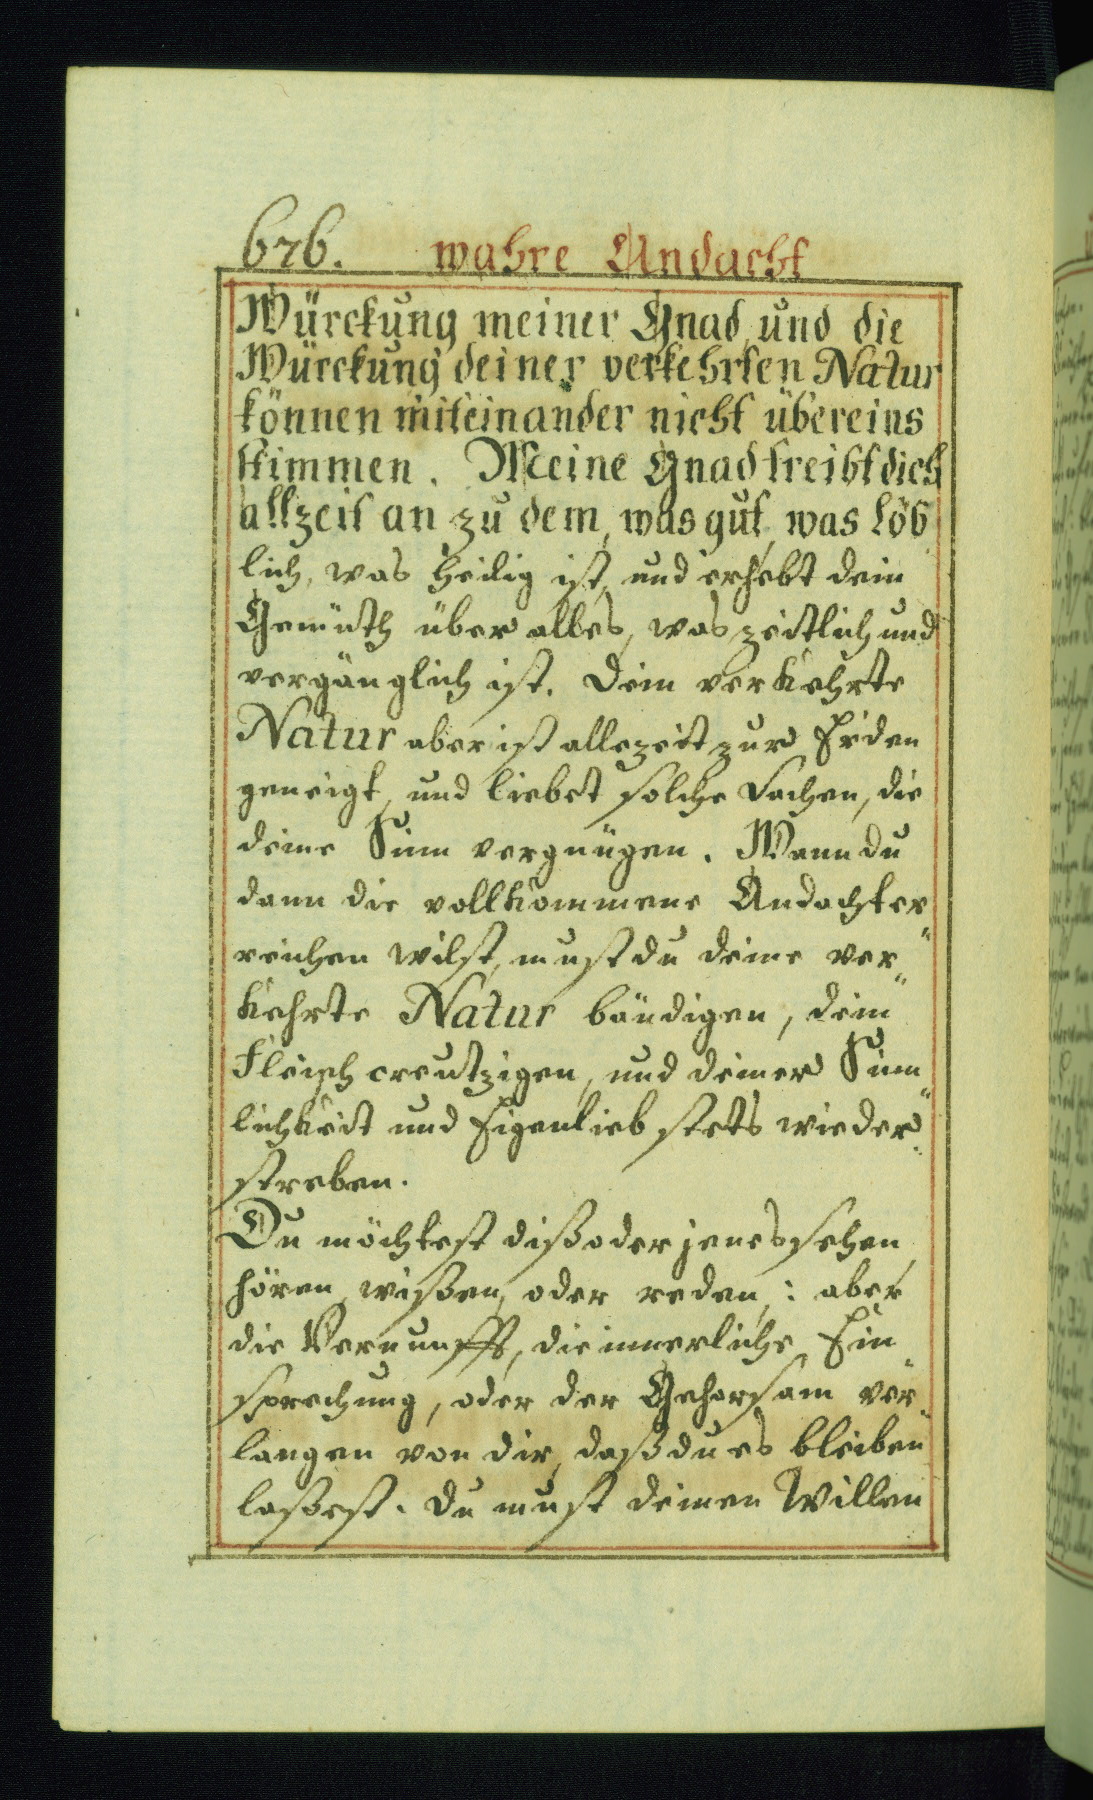 676. wahre Andacht
Würckung meiner Gnad, und die
Würckung deiner verkehrten Natur
können miteinander nicht übereins
stimmen. Meine Gnad treibt dich
allzeit an zu dem, was gut, was löb
lich, was heilig ist, und erhebt dein
Gemüth über alles, was zeitlich und
vergänglich ist. Dein verkehrte
Natur aber ist allezeit zur Erden
geneigt, und liebet solche Sachen, die
deine Sinn vergnügen. Wann du
dann die vollkommene Andacht er
reichen wilst, must du deine ver"
kehrte Natur bändigen, dein"
Fleisch creutzigen, und deiner Sinn
lichkeit und Eigenlieb stets wieder"
streben.
Du möchtest diß oder jenes sehen
hören, wißen, oder reden,: aber
die Vernunfft, die innerliche Ein
sprechung, oder der Gehorsam ver"
langen von dir, daß du es bleiben
laßest. Du must deinen Willen